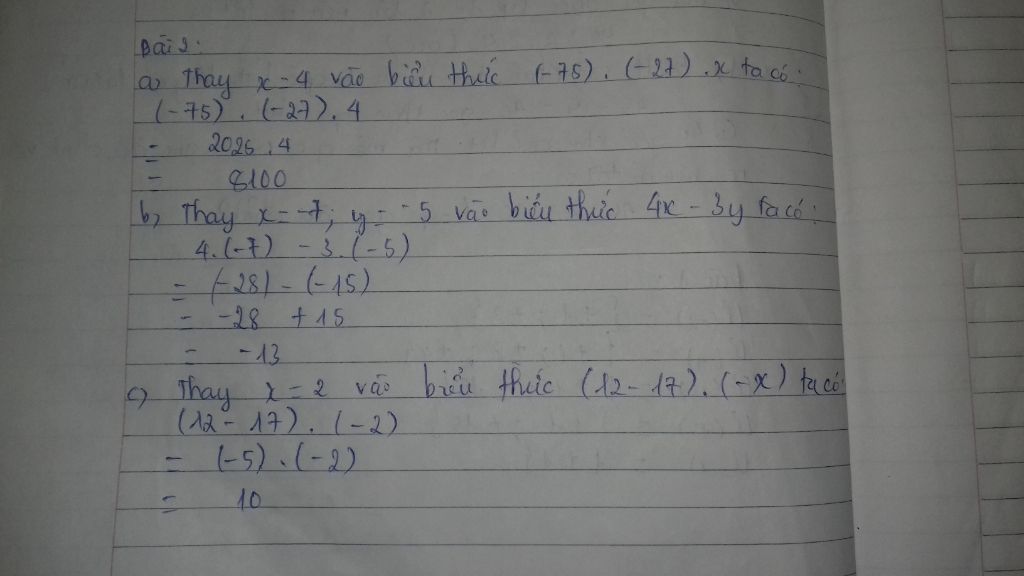 Bài 2:
a) Thay x = 4 vào biểu thức (-75) . (-27) . x ta có:
(-75) . (-27) . 4
= 2025 . 4
= 8100
b) Thay x = -7; y = -5 vào biểu thức 4x - 3y ta có:
4.(-7) - 3.(-5)
= (-28) - (-15)
= -28 + 15
= -13
c) Thay x = 2 vào biểu thức (12 - 17) . (-x) ta có:
(12 - 17) . (-2)
= (-5) . (-2)
= 10